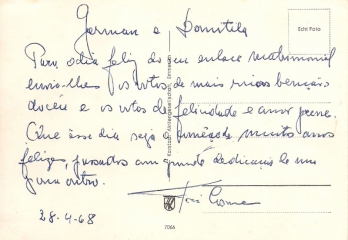 German e Domitila
Echt Foto
Para o dia feliz do seu enlace matrimonial
envio-lhes os votos de mais ricas bençãos
do céu e os votos de felicidade e amor perene.
Que êsse dia seja a de muitos anos
felizes, passados com grande dedicação de um
para outro.
José
28-4-68
7066